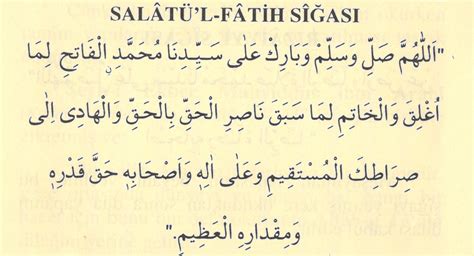 SALÂTÜ’L-FÂTİH SÎĞASI
"اَللّٰهُمَّ صَلِّ وَسَلِّمْ وَبَارِكْ عَلٰى سَيِّدِنَا مُحَمَّدٍ الْفَاتِحِ لِمَا
اُغْلِقَ وَالْخَاتِمِ لِمَا سَبَقَ نَاصِرِ الْحَقِّ بِالْحَقِّ وَالْهَادِى اِلٰى
صِرَاطِكَ الْمُسْتَقِيمِ وَعَلٰى اٰلِهٖ وَاَصْحَابِهٖ حَقَّ قَدْرِهٖ
وَمِقْدَارِهِ الْعَظِيمِ."